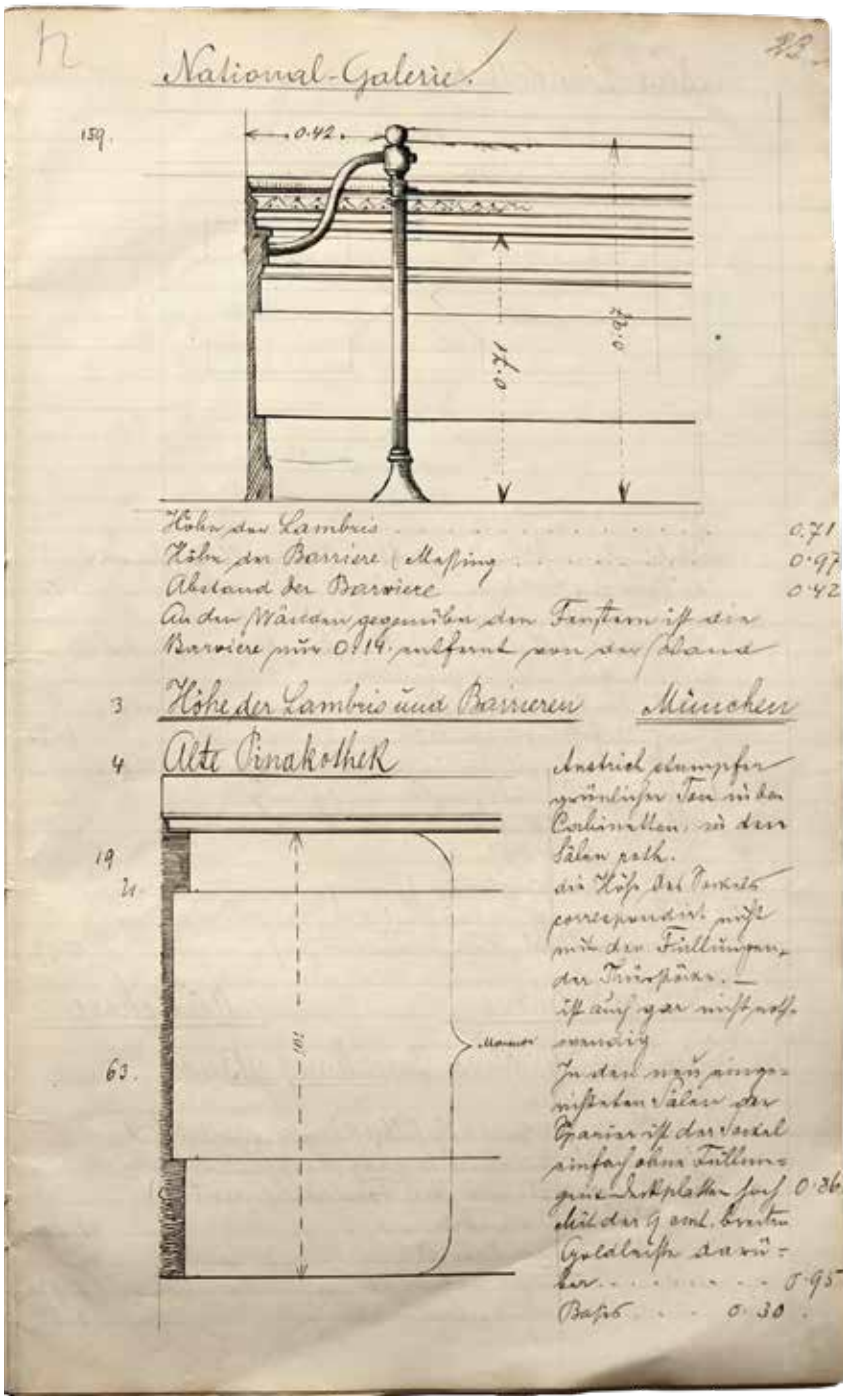 23.
National-Galerie.
159.
0.42.
0.71
0.97
Höhe der Lambris 0.71
Höhe der Barriere (Meßing 0.97
Abstand der Barriere 0.42
An den Wänden gegenüber den Fenstern ist die
Barriere nur 0.14. entfernt von der Wand
3 Höhe der Lambris und Barrieren München
4 Alte Pinakothek
Anstrich stumpfer
grünlicher Ton in den
Cabinetten, in den
19
Sälen roth.
die Höhe des Sockels
correspondirt nicht
mit den Füllungen
der Thürstöcke. —
ist auch gar nicht noth-
wendig
63.
In den neu einge-
richteten Sälen der
Spanier ist der Sockel
einfach ohne Füllun-
gen Deckplatten hoch 0.86
Mit der 9 cmt. breiten
Goldleiste darü-
ber 0.95
Basis 0.30